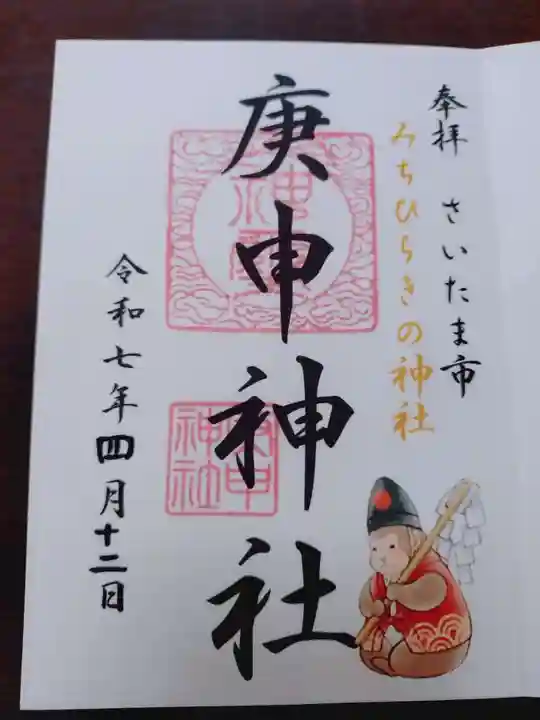 奉拝 さいたま市
みちひらきの神社
庚申神社
令和七年四月十二日
庚申
神社